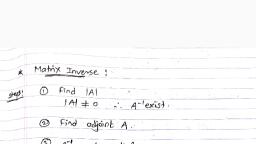 * Matrix Inverse :
step: ① Find |A|
|A| ≠ 0 ∴ A⁻¹ exist.
② Find adjoint A.
③ A⁻¹